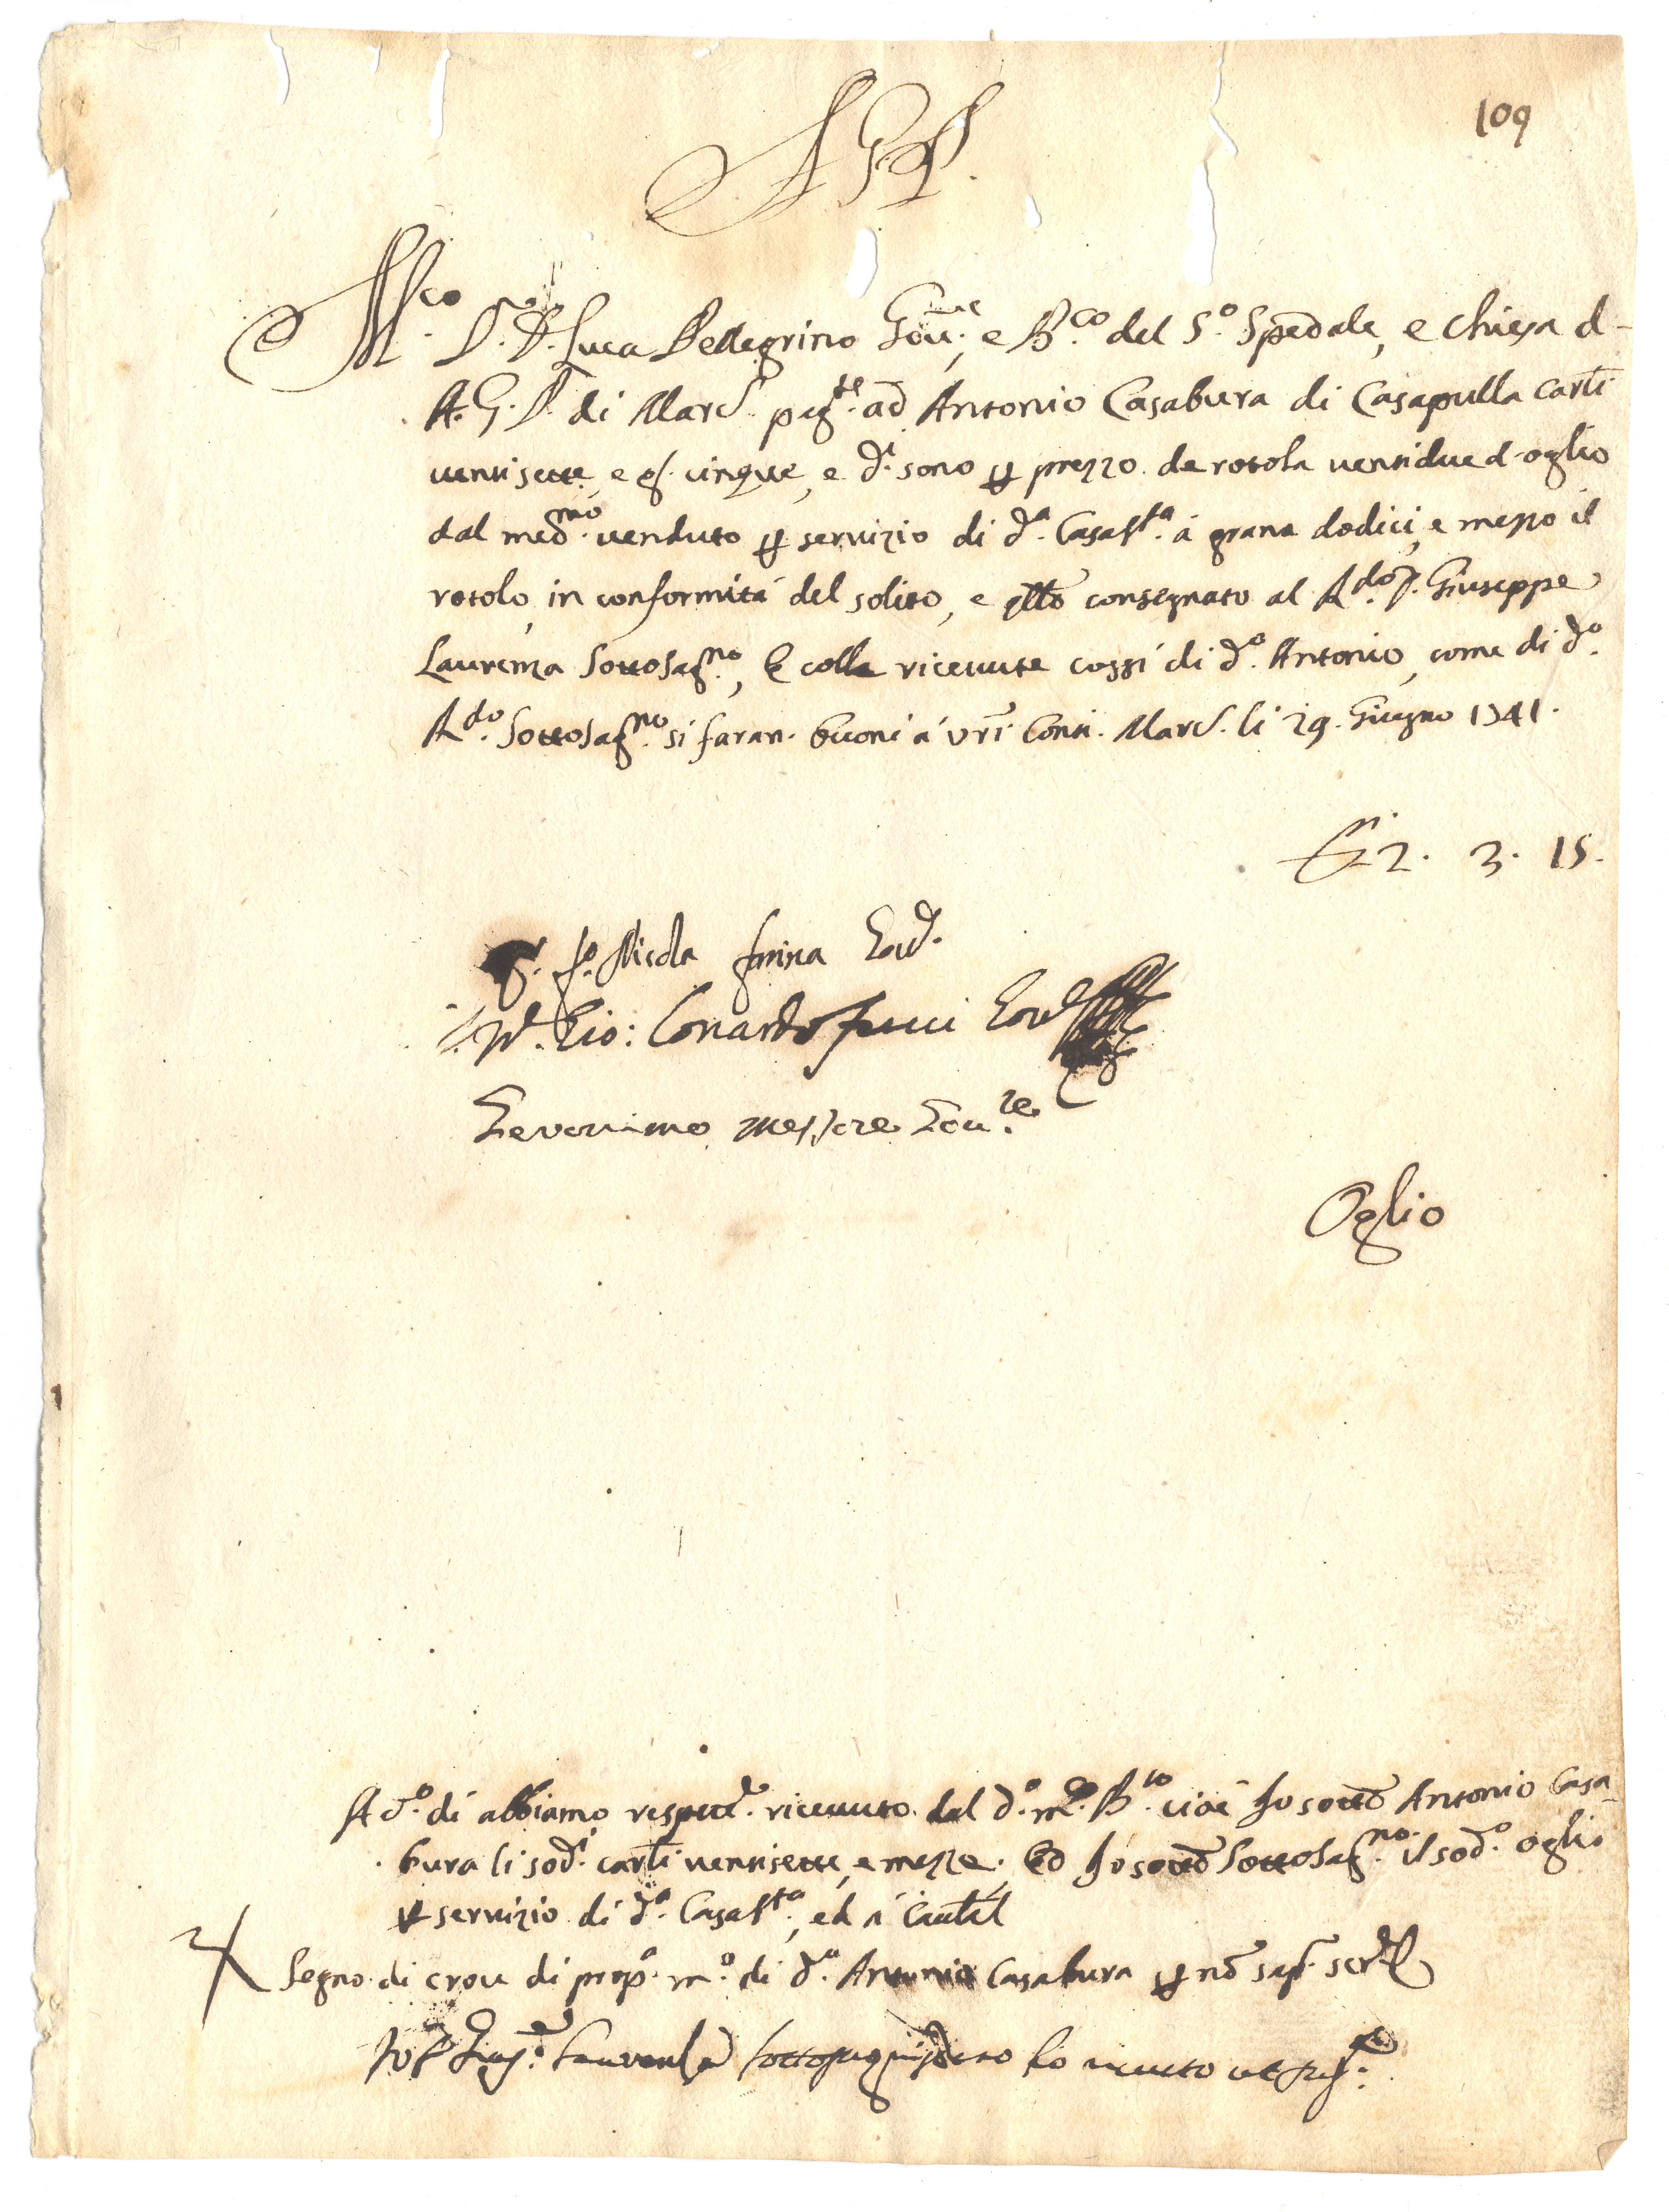 109
A. G. P.
M.co D. D. Luca Pellegrino Gov.re, e B.co del S.o Spedale, e Chiesa d-
A. G. P. di Marc. pag.te ad Antonio Casabura di Casapulla carli
ventisette, e g. cinque, e d.i sono p prezzo de rotola ventidue d'oglio
dal med.mo venduto p servizio di d.a Casa S.ta à grana dodici, e mezzo il
rotolo, in conformità del solito, e q̃llo consegnato al R.do D. Giuseppe
Laurenza SottoSag.no, E colle ricevute cossì di d.o Antonio, come di d.o
R.do SottoSag.no si faran. buoni à vri Conti. Marc. li 29. Giugno 1741.
2. 3. 15.
Nicola farina Gov.
Gio: Gov.
Geronimo Messore Gov.re
Oglio
A d.o dì abbiamo respett.e ricevuto dal d.o m.co B.co cioè Io sotto Antonio Casa-
bura li sod.i carli ventisette, e mezzo. Ed Io sotto SottoSag.no il sod.o oglio
p servizio di d.a Casa S.ta, ed à Cautel
Segno di croce di prop.a m.o di d.o Antonio Casabura p nõ sap. scri.
Io D. Gius.e Laurenza sottosagristano ho ricevuto ut sup.a